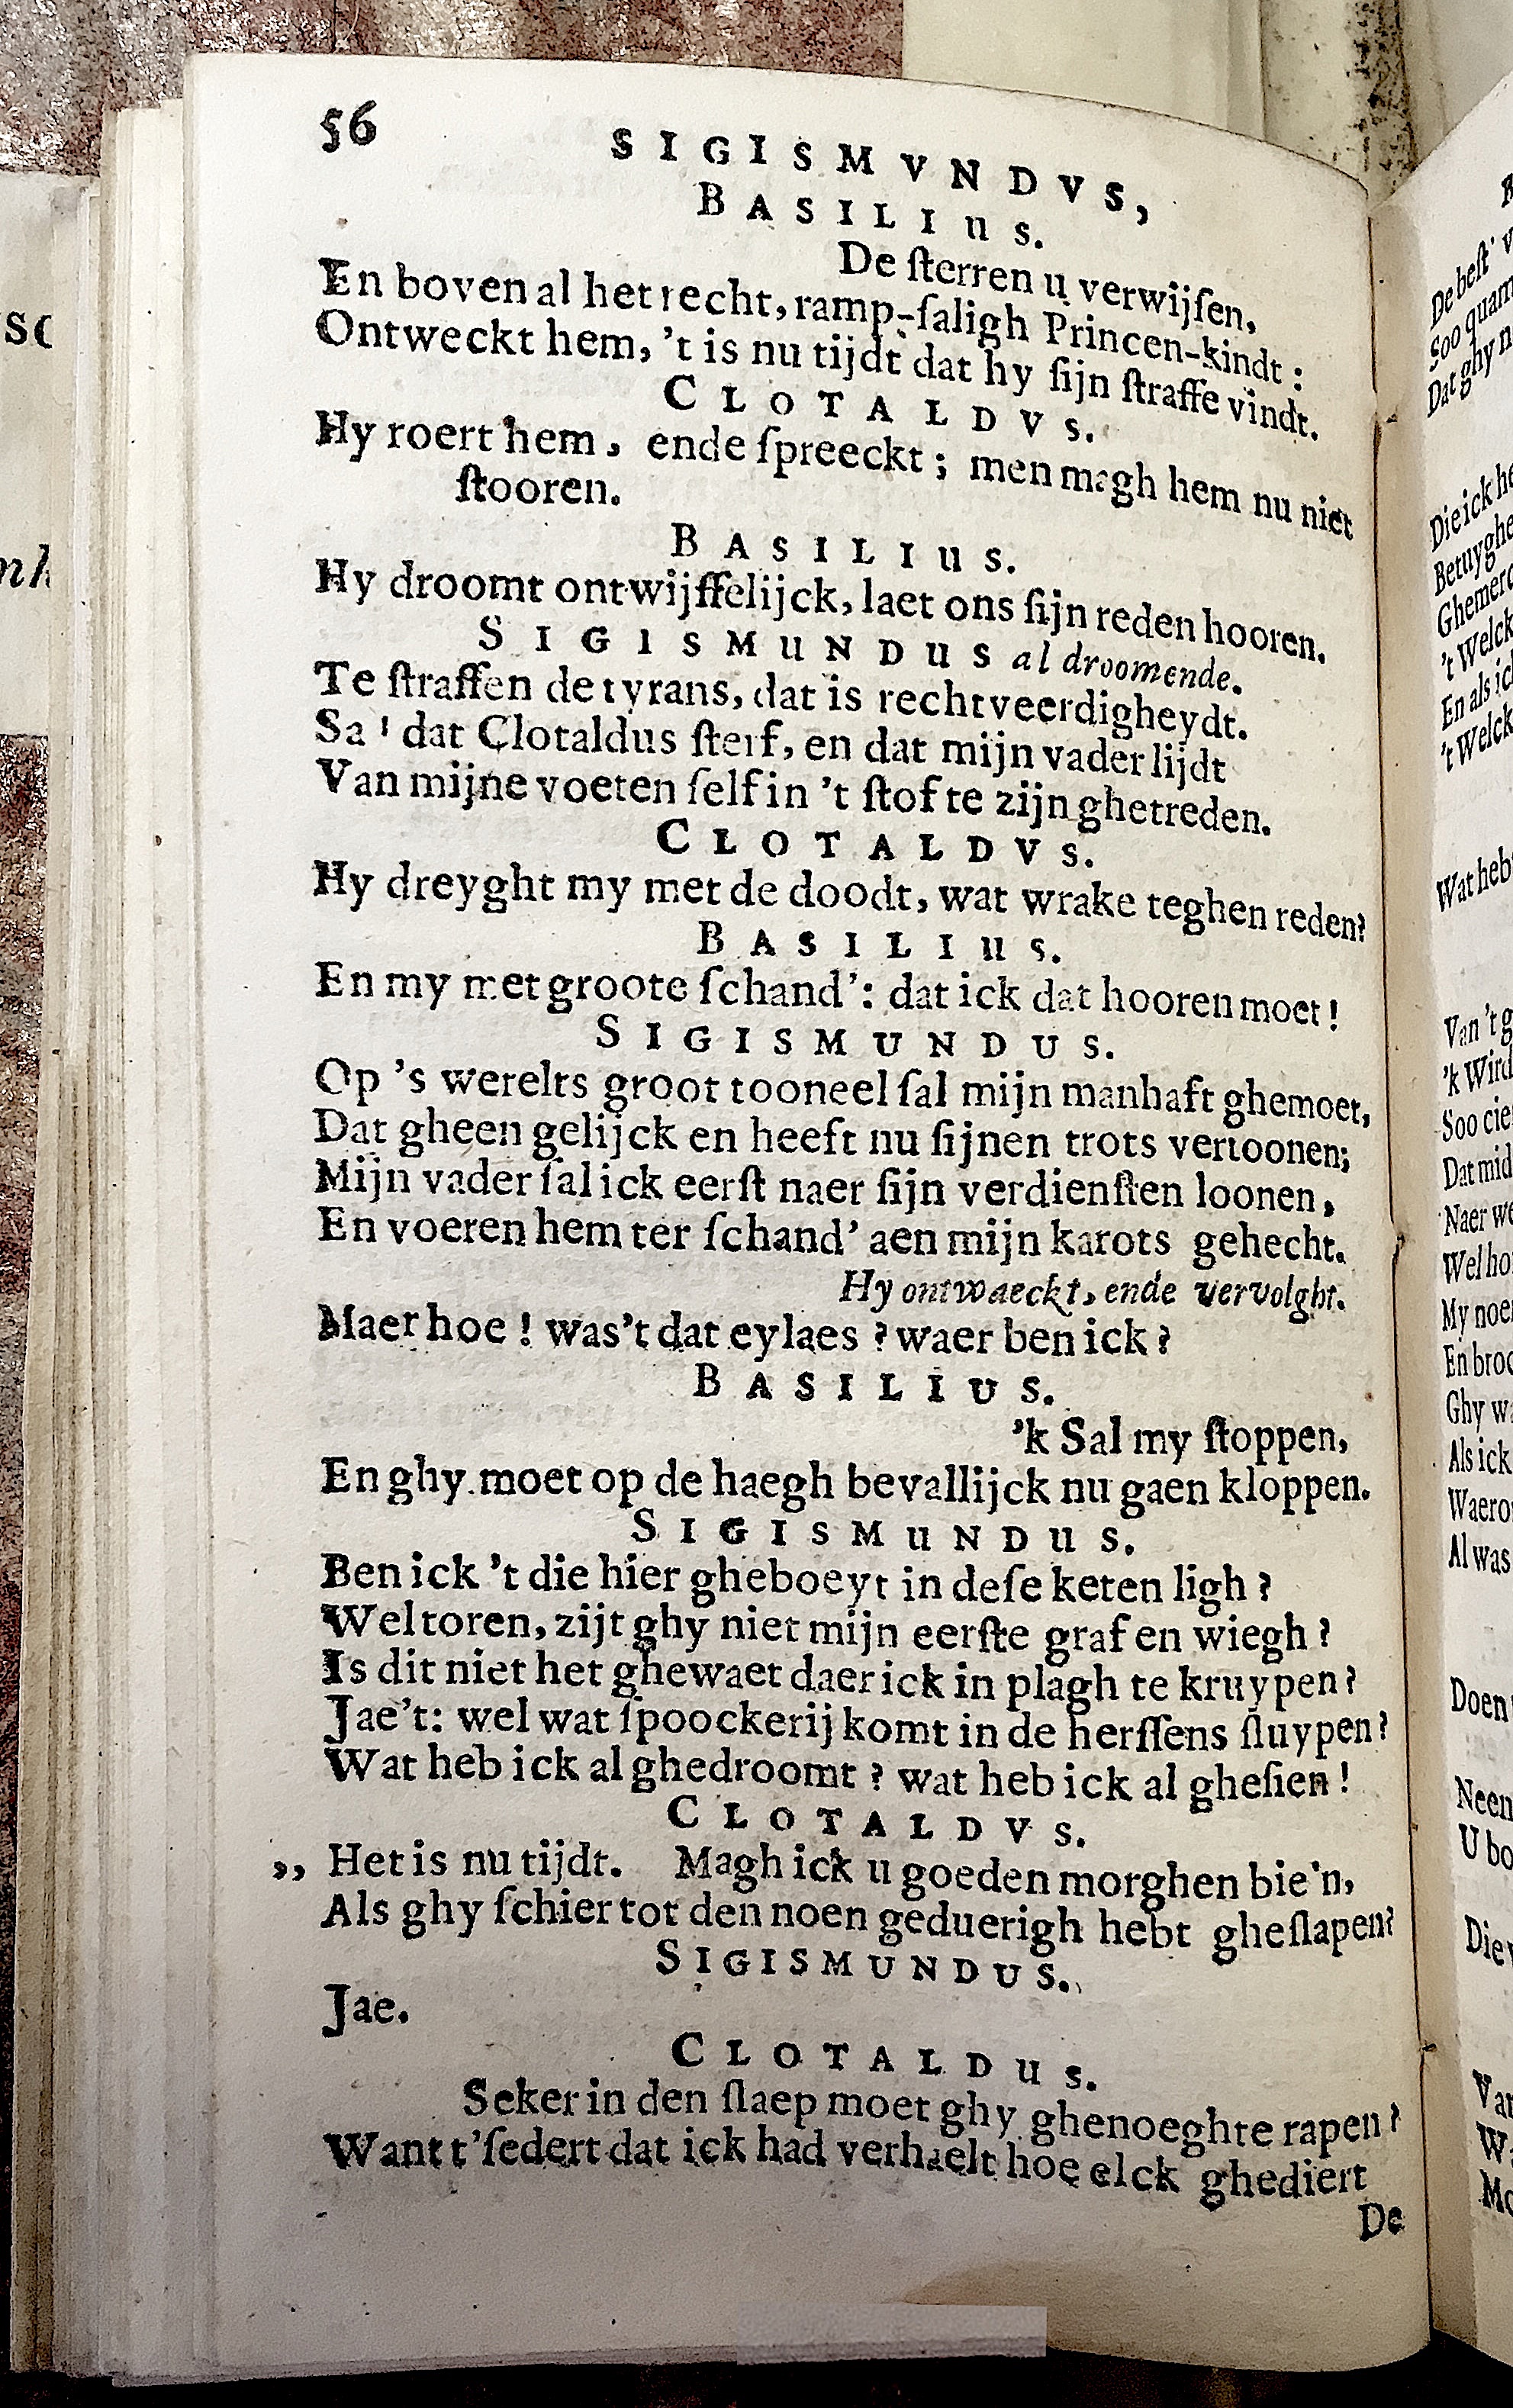 56
SIGISMVNDVS,
BASILIUS.
De ſterren u verwijſen,
En boven al het recht, ramp-ſaligh Princen-kindt:
Ontweckt hem, 't is nu tijdt dat hy ſijn ſtraffe vindt.
CLOTALDVS.
Hy roert hem, ende ſpreeckt; men magh hem nu niet
ſtooren.
BASILIUS.
Hy droomt ontwijffelijck, laet ons ſijn reden hooren.
SIGISMUNDUS al droomende.
Te ſtraffen de tyrans, dat is rechtveerdigheydt.
Sa! dat Clotaldus ſterf, en dat mijn vader lijdt
Van mijne voeten ſelf in 't ſtof te zijn ghetreden.
CLOTALDVS.
Hy dreyght my met de doodt, wat wrake teghen reden?
BASILIUS.
En my met groote ſchand': dat ick dat hooren moet!
SIGISMUNDUS.
Op 's werelts groot tooneel ſal mijn manhaft ghemoet,
Dat gheen gelijck en heeft nu ſijnen trots vertoonen;
Mijn vader ſal ick eerſt naer ſijn verdienſten loonen,
En voeren hem ter ſchand' aen mijn karots gehecht.
Hy ontwaeckt, ende vervolght.
Maer hoe! was't dat eylaes? waer ben ick?
BASILIUS.
'k Sal my ſtoppen,
En ghy moet op de haegh bevallijck nu gaen kloppen.
SIGISMUNDUS.
Ben ick 't die hier gheboeyt in deſe keten ligh?
Wel toren, zijt ghy niet mijn eerſte graf en wiegh?
Is dit niet het ghewaet daer ick in plagh te kruypen?
Jae't: wel wat ſpoockerij komt in de herſſens ſluypen?
Wat heb ick al ghedroomt? wat heb ick al gheſien!
CLOTALDVS.
,, Het is nu tijdt. Magh ick u goeden morghen bie'n,
Als ghy ſchier tot den noen geduerigh hebt gheſlapen?
SIGISMUNDUS.
Jae.
CLOTALDUS.
Seker in den ſlaep moet ghy ghenoeghte rapen?
Want t'ſedert dat ick had verhaelt hoe elck ghediert
De